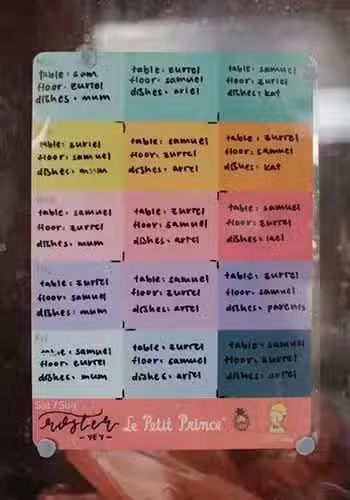 table: sam
floor: zuriel
dishes: mum
table: zuriel
floor: samuel
dishes: ariel
table: samuel
floor: zuriel
dishes: kat
table: zuriel
floor: samuel
dishes: mum
table: samuel
floor: zuriel
dishes: ariel
table: zuriel
floor: samuel
dishes: kat
table: samuel
floor: zuriel
dishes: mum
table: zuriel
floor: samuel
dishes: ariel
table: samuel
floor: zuriel
dishes:
table: zuriel
floor: samuel
dishes: mum
table: samuel
floor: zuriel
dishes: ariel
table: zuriel
floor: samuel
dishes: parents
Fri
samuel
floor: zuriel
dishes: mum
table: zuriel
floor: samuel
dishes: ariel
table: samuel
floor: zuriel
dishes: ariel
Sat / Sun
roster
- YEY -
Le Petit Prince